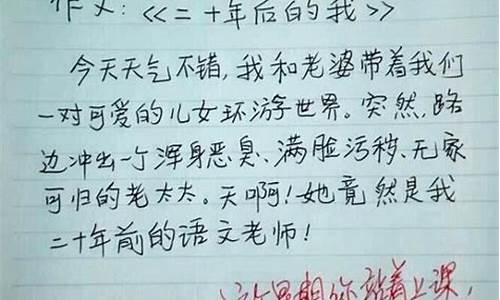 作文:<<二十年后的我>>
今天天气不错,我和老婆带着我们
一对可爱的儿女环游世界。突然,路
边冲出一个浑身恶臭、满脸污秽、无家
可归的老太太。天啊!她竟然是我
二十年前的语文老师!
这个星期你站着上课,